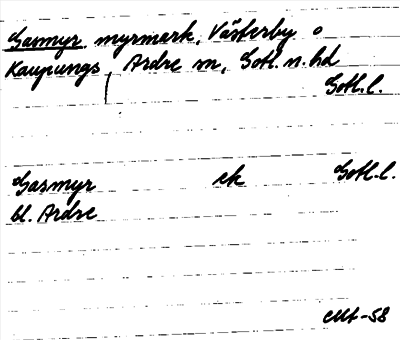 Gasmyr myrmark, Västerby o
Kaupungs, Ardre sn, Gotl. n. hd
Gotl. l.
Gasmyr ek Gotl. l.
bl. Ardre
-58